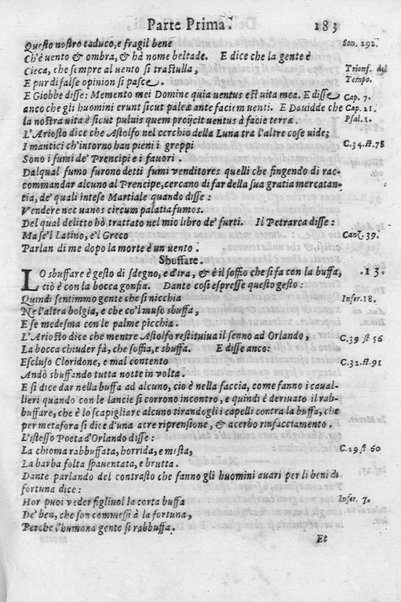 Parte Prima. 183
Questo nostro caduco, e fragil bene Son. 292.
Ch'è uento & ombra, & hà nome beltade. E dice che la gente è
Cieca, che sempre al uento si trastulla, Trionf. del
E pur di false opinion si pasce. Tempo.
E Giobbe disse: Memento mei Domine quia uentus est uita mea. E disse Cap. 7.
anco che gli huomini erunt sicut paleæ ante faciem uenti. E Dauidde che Cap. 21.
la nostra uita è sicut puluis quem proÿcit uentus à facie terræ. Psal. 1.
L'Ariosto dice che Astolfo nel cerchio della Luna tra l'altre cose uide;
I mantici ch'intorno han pieni i greppi C.34.st.78
Sono i fumi de' Prencipi e i fauori.
Dal qual fumo furono detti fumi venditores quelli che fingendo di rac-
commandar alcuno al Prencipe, cercano di far della sua gratia mercatan-
tia, de' quali intese Martiale quando disse:
Vendere nec uanos circum palatia fumos.
Del qual delitto hò trattato nel mio libro de' furti. Il Petrarca disse:
Ma se'l Latino, e'l Greco Canz. 39.
Parlan di me dopo la morte è un uento.
Sbuffare.
LO sbuffare è gesto di sdegno, e d'ira, & è il soffio che si fa con la buffa, 13.
ciò è con la bocca gonfia. Dante così espresse questo gesto:
Quindi sentimmo gente che si nicchia Infer. 18.
Ne l'altra bolgia, e che co'l muso sbuffa,
E se medesma con le palme picchia.
L'Ariosto dice che mentre Astolfo restituiua il senno ad Orlando, C.39 st 56
La bocca chiuder fà, che soffia, e sbuffa. E disse anco:
Escluso Cloridone, e mal contento C.32.st.91
Andò sbuffando tutta notte in volta.
E si dice dar nella buffa ad alcuno, ciò è nella faccia, come fanno i caual-
lieri quando con le lancie si corrono incontro, e quindi è deriuato il rab-
buffare, che è lo scapigliare alcuno tirandogli i capelli contra la buffa, che
per metafora si dice d'una acre riprensione, & acerbo rinfacciamento.
L'istesso Poeta d'Orlando disse:
La chioma rabbuffata, horrida, e mesta, C.19.st 60
La barba folta spauentata, e brutta.
Dante parlando del contrasto che fanno gli huomini auari per li beni di
fortuna dice:
Hor puoi veder figliuol la corta buffa Infer. 7.
De' ben, che son commessi à la fortuna,
Perche l'humana gente si rabbuffa.
Et